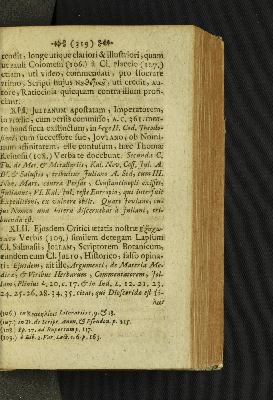 (319)
tendit, longe utique clariori & illustriori, quam
ut anili Colomesii (106.) à Cl. Placcio (107.)
etiam, uti video, commendati, pro florente
vitrio, Scripti hujus
tore, Ratiocinia quicquam contra illum profi-
ciant.
XLI. JULIANUM Apostatam, Imperatorem,
in prœlio, cum Persis commisso, A. C. 361. mor-
te haud sicca exstinctum, in lege II. Cod. Theodo-
siani, cum successore suo, JOVIANO, ob Nomi-
num affinitatem, esse confusum, hæc Thomæ
Reinesii (108.) Verba te docebunt: Secunda C.
Th. de Mer. & Metallariis, Kal. Nov. Coss. Jul. A.
IV. & Salustio, tribuitur Juliano A. Sed, cum III.
Non. Mart. contra Persas, Constantinopoli exiisset
Julianus, VI. Kal. Jul. teste Eutropio, qui interfuit
Expeditioni, ex vulnere obiit. Quare Joviano, cu-
jus Nomen una litera discrebat à Juliani, tri-
buenda est.
XLII. Ejusdem Critici ætatis nostræ
Verbis (109.) similem detegam Lapsum
Cl. Salmasii, JOLEAM, Scriptorem Botanicum,
eundem cum Cl. JULIO, Historico, falso opina-
ti: Ejusdem, ait ille, Argumenti, de Materia Me-
dica, & Viribus Herbarum, Commentatorem, Jol-
lam, Plinius l. 20. c. 17. & in Ind. l. 12. 21. 23.
24. 25. 26. 28. 34. 35. citat, qui Dioscoridi est
(106.) in
(107.) in Tr. de Script. Anon. & Pseudon. p. 215.
(108.) Ep. 17. ad Rupertum, p. 117.
(109.) à Lib. 2. Var. Lect. c. 6. p. 163.